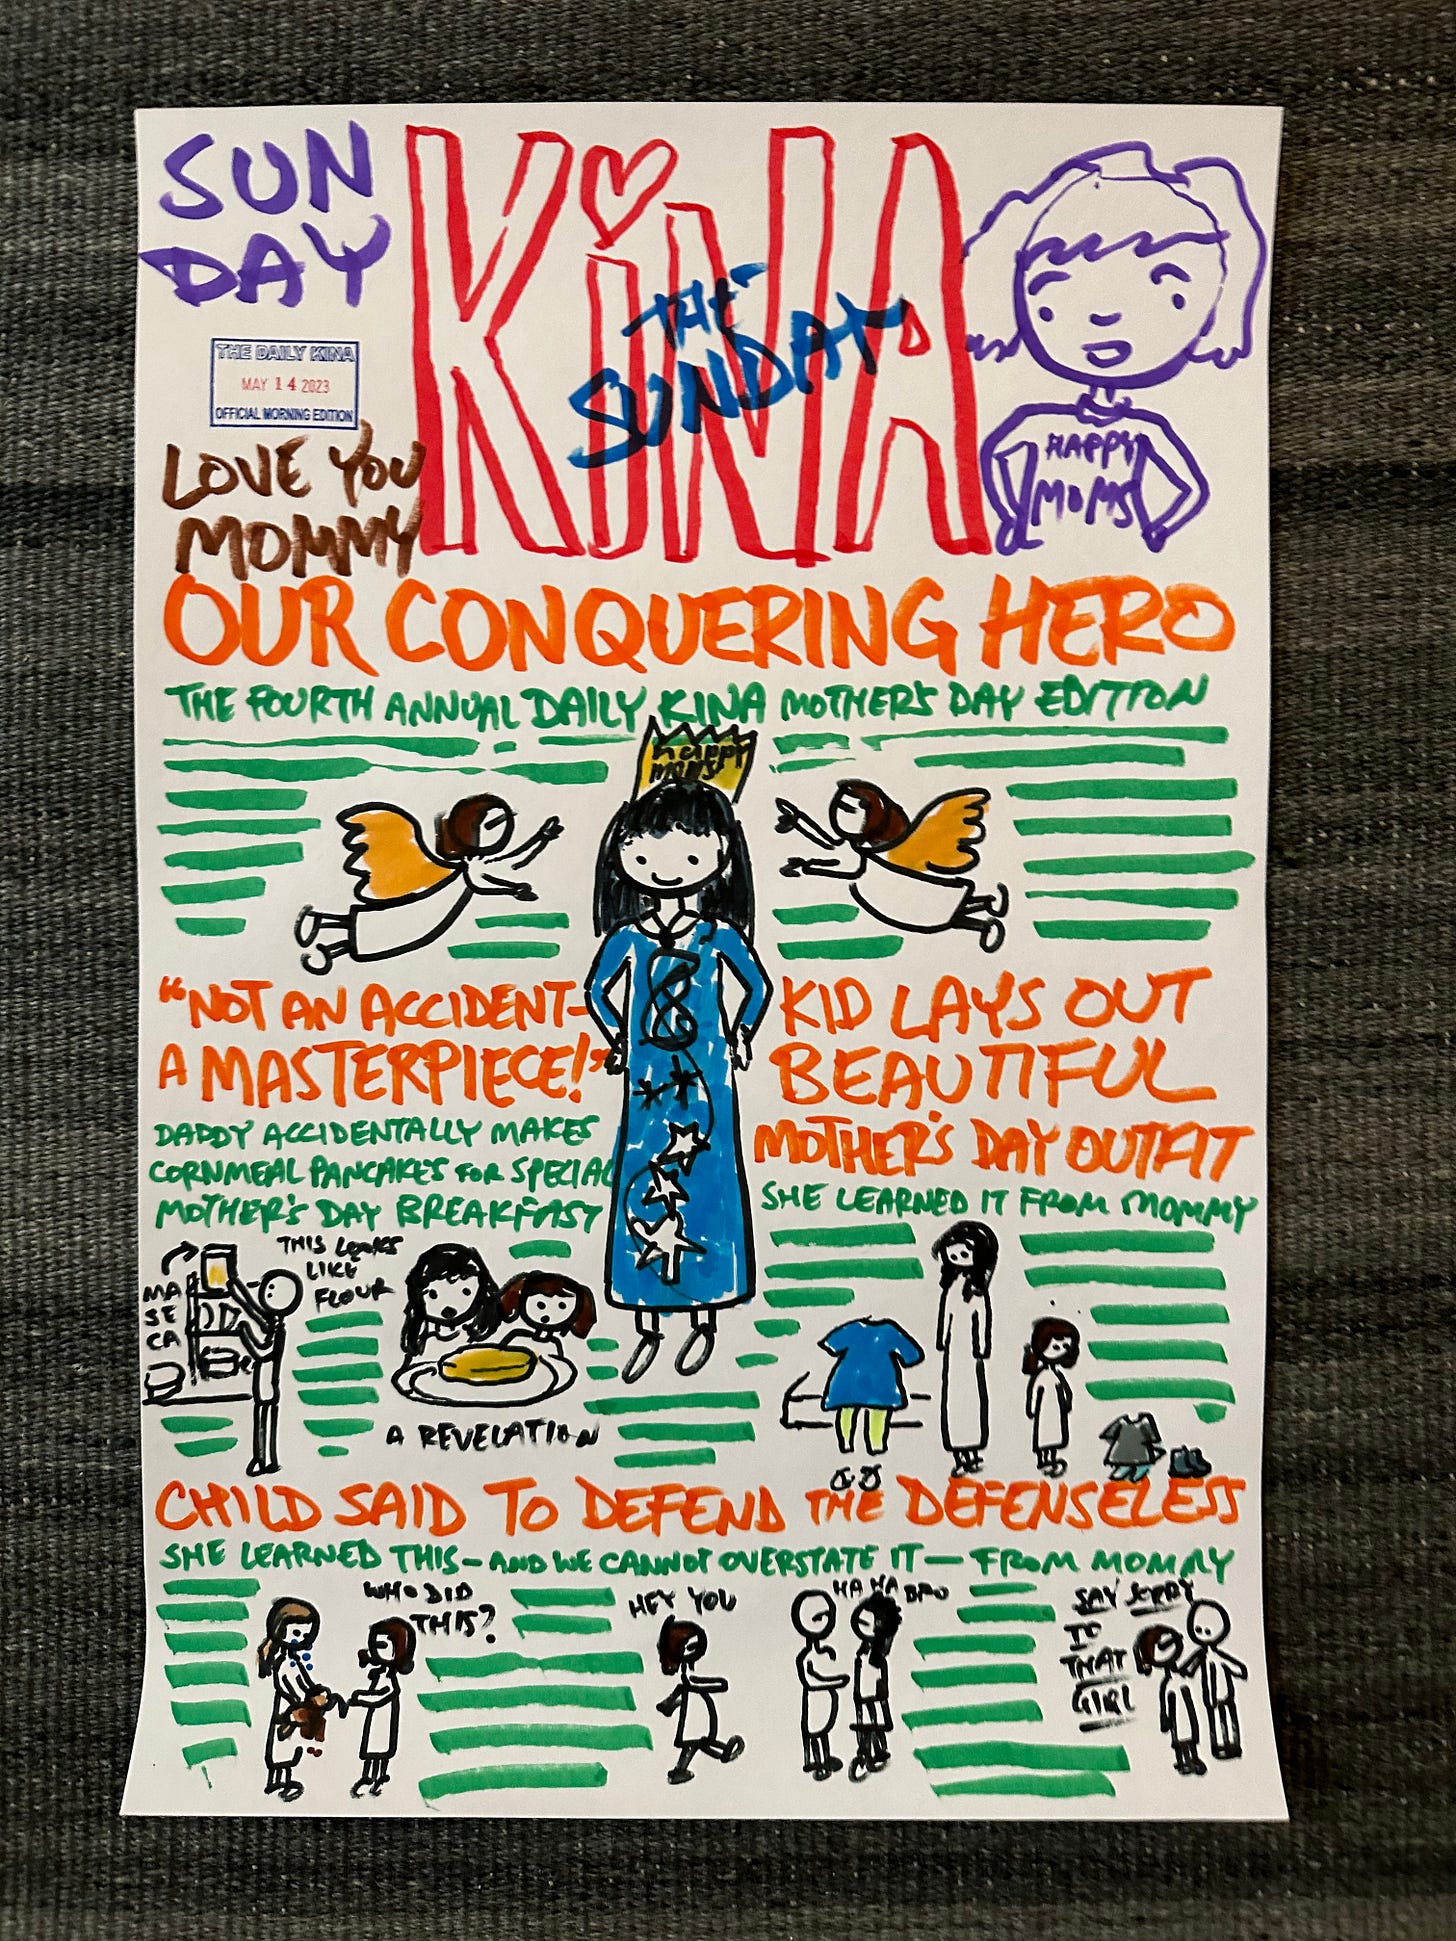 SUN
DAY
KiNA
THE
SUNDAY
THE DAILY KINA
MAY 14 2023
OFFICIAL MORNING EDITION
LOVE YOU
MOMMY
HAPPY
MOMS
OUR CONQUERING HERO
THE FOURTH ANNUAL DAILY KINA MOTHER'S DAY EDITION
HAPPY
MOMS
"NOT AN ACCIDENT-
A MASTERPIECE!"
DADDY ACCIDENTALLY MAKES
CORNMEAL PANCAKES FOR SPECIAL
MOTHER'S DAY BREAKFAST
MA
SE
CA
THIS LOOKS
LIKE
FLOUR
A REVELATION
KID LAYS OUT
BEAUTIFUL
MOTHER'S DAY OUTFIT
SHE LEARNED IT FROM MOMMY
CHILD SAID TO DEFEND THE DEFENSELESS
SHE LEARNED THIS - AND WE CANNOT OVERSTATE IT - FROM MOMMY
WHO DID
THIS?
HEY YOU
HA HA BRO
SAY SORRY
TO
THAT
GIRL